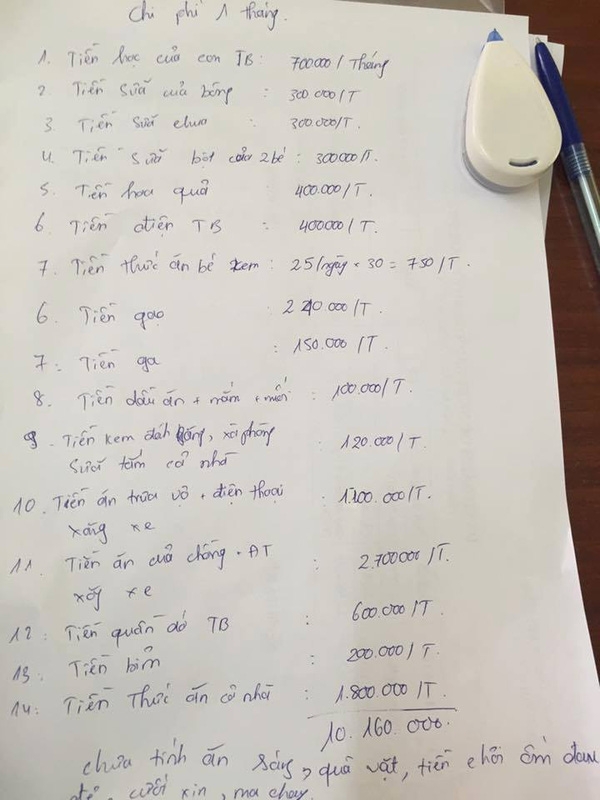 Chi phí 1 tháng.
1. Tiền học của con TB: 700000/Tháng
2 Tiền Sữa của bống : 300.000/T
3 Tiền Sữa chua : 300.000/T.
4. Tiền Sữa bột của 2 bé : 300000/T.
5. Tiền hoa quả : 400.000/T.
6 Tiền điện TB : 400000/T.
7. Tiền thức ăn bé kem : 25/ngày × 30 = 750/T.
6. Tiền gạo : 240.000/T
7. Tiền ga : 150.000/T.
8. Tiền dầu ăn + mắm + muối : 100.000/T.
9. Tiền kem đánh răng, xà phòng : 120.000/T.
Sữa tắm cả nhà
10. Tiền ăn trưa vợ + điện thoại : 1.100.000/T.
xăng xe
11. Tiền ăn của chồng + ĐT : 2.700000/T.
xăg xe
12. Tiền quần áo TB : 600.000/T
13. Tiền bỉm : 200.000/T.
14. Tiền Thức ăn cả nhà : 1.800.000/T.
10.160.000.
chưa tính ăn sáng, quà vặt, tiền chơi ốm đau
đẻ, cưới xin, ma chay.